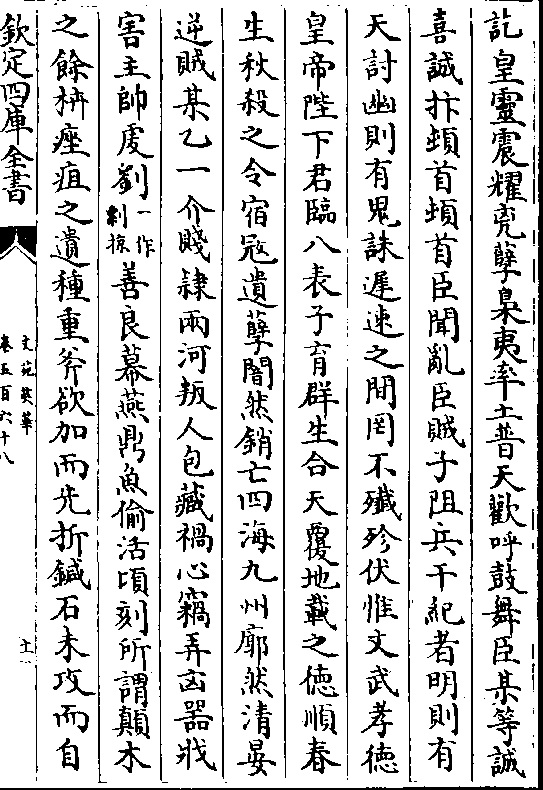 訖皇靈震耀兇孽梟夷率土普天歡呼鼓舞臣某等誠
喜誠抃頓首頓首臣聞亂臣賊子阻兵干紀者明則有
天討幽則有鬼誅遲速之間罔不殲殄伏惟文武孝德
皇帝陛下君臨八表子育群生合天覆地載之德順春
生秋殺之令宿寇遺孽闇然銷亡四海九州廓然清晏
逆賊某乙一介賤隸兩河叛人包藏禍心竊弄兵器戕
害主帥虔劉一作剽掠善良幕燕鼎魚偷活頃刻所謂顛木
之餘枿痤疽之遺種重斧欲加而先折鍼石未攻而自
欽定四庫全書
文苑英華
卷五百六十八
十一